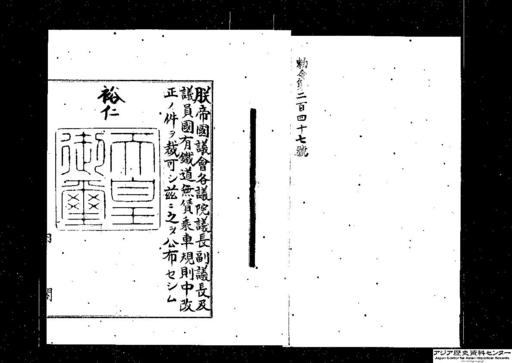 勅令第二百四十七號
朕帝國議會各議院議長副議長及
議員國有鐵道無賃乘車規則中改
正ノ件ヲ裁可シ茲ニ之ヲ公布セシム
裕仁
天皇
御璽
内閣
アジア歴史資料センター
Japan Center for Asian Historical Records